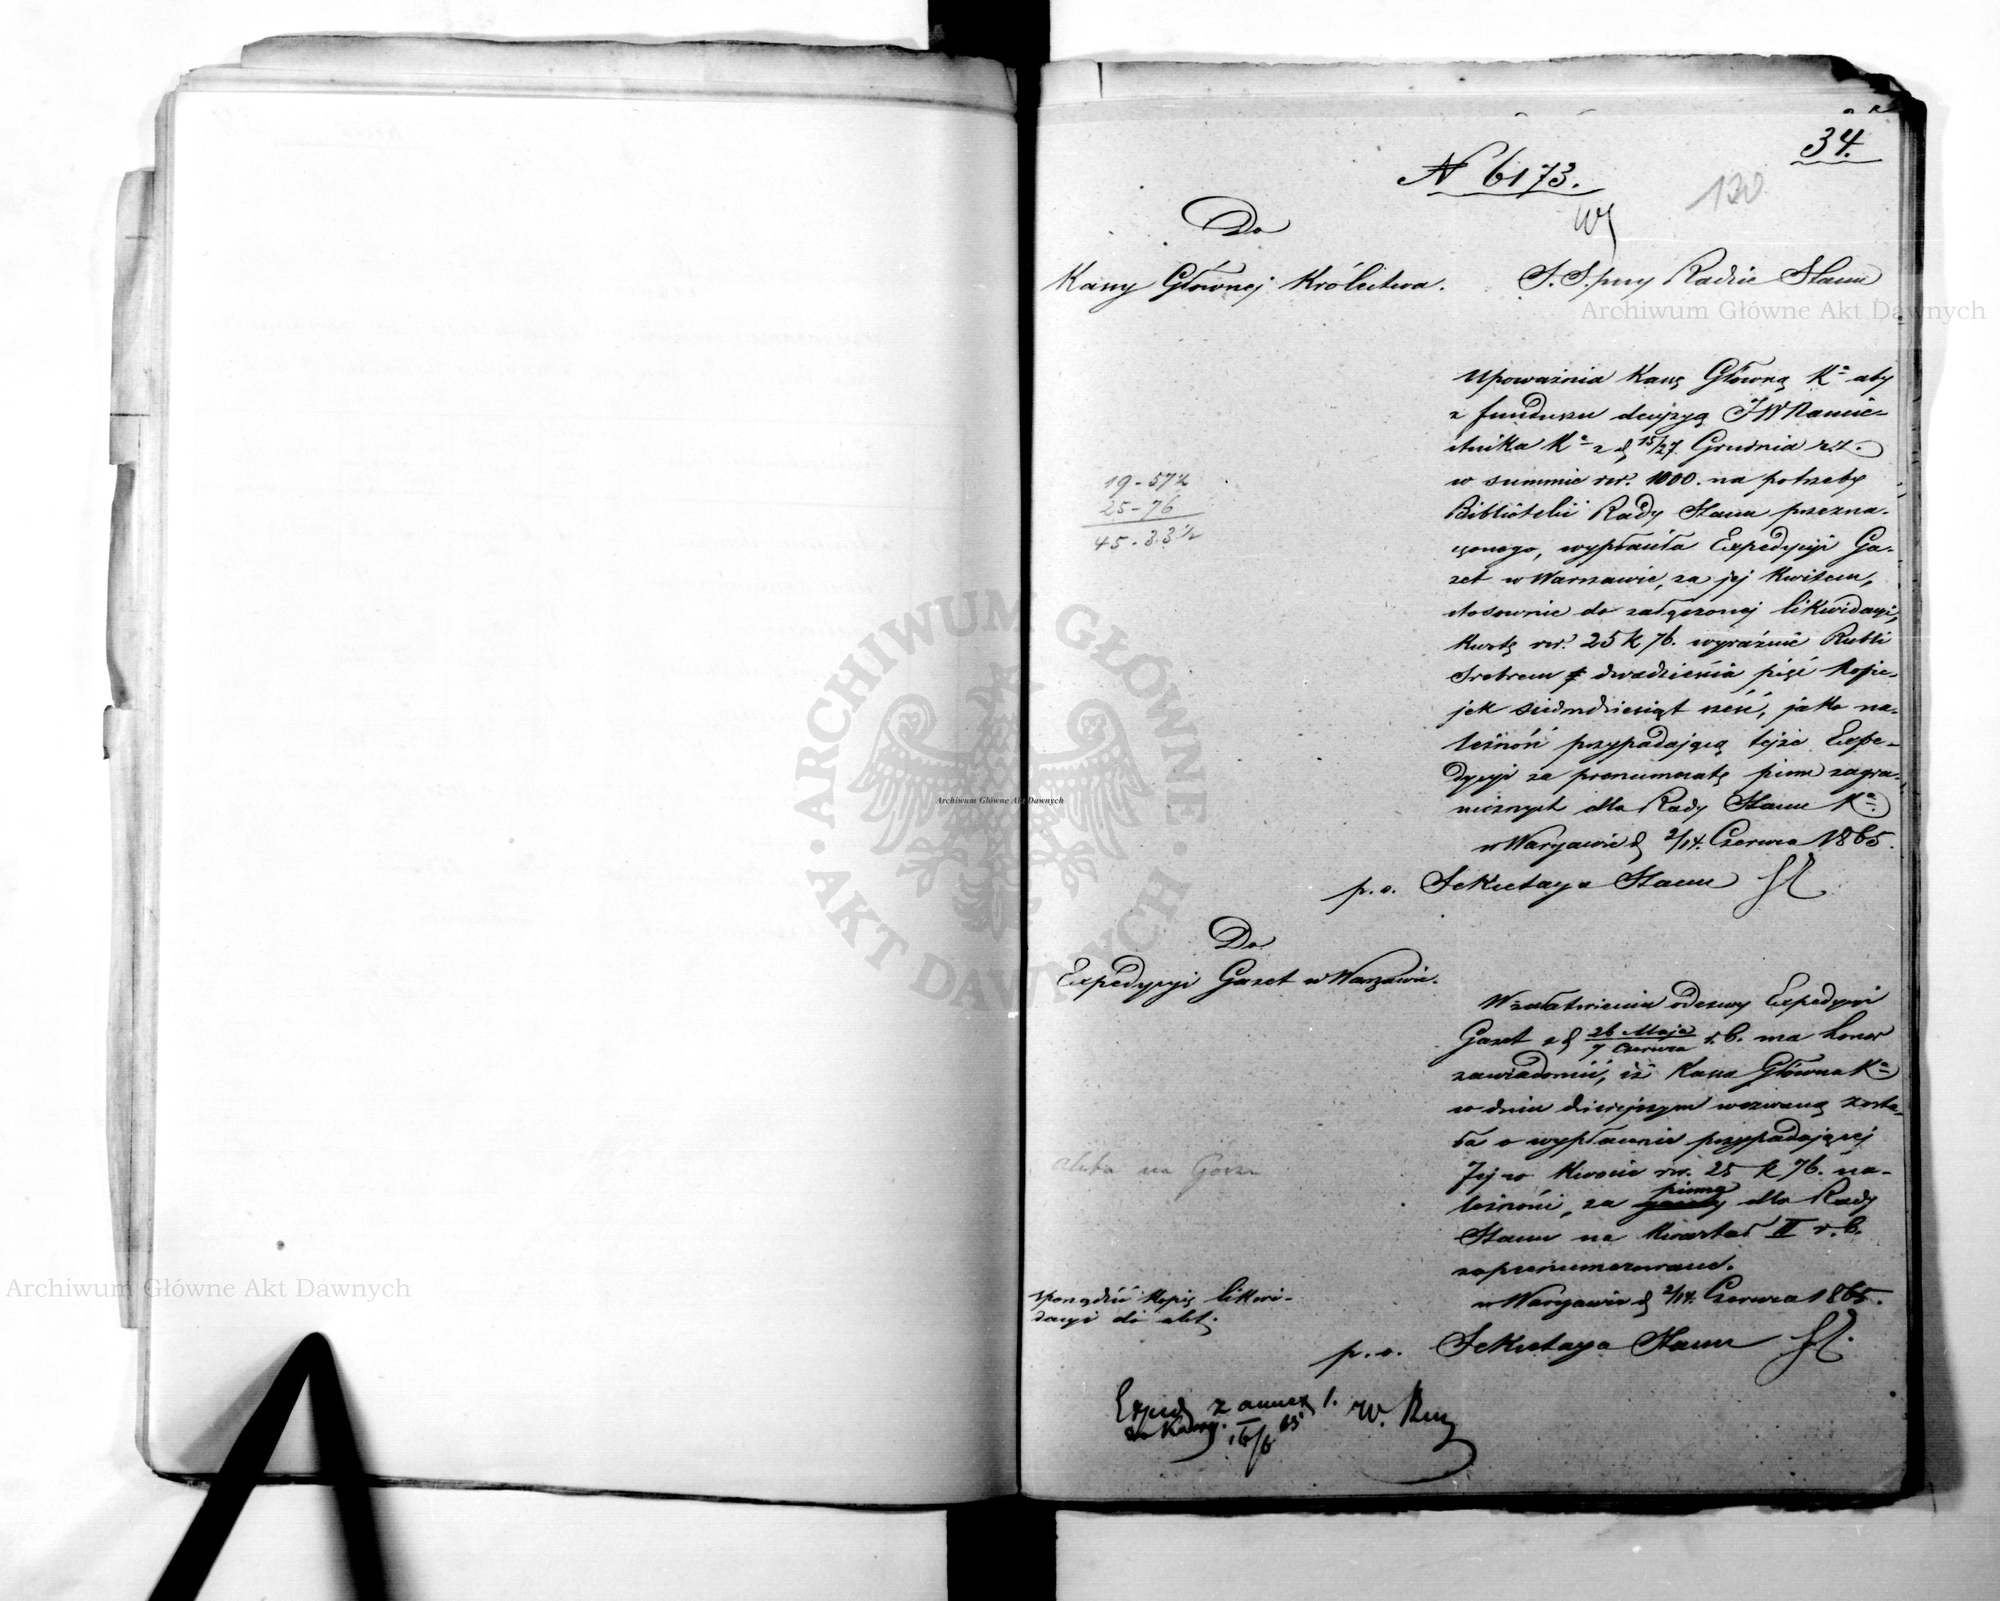 34.
N 6173.
130
Do
Kassy Głównej Królestwa.
S. S. przy Radzie Stanu
Upoważnia Kassę Główną Kᵃ aby
z funduszu decyzyą JW Namie-
stnika Kᵃ z d 15/27. Grudnia r.z.
w summie rsr. 1000. na potrzeby
Biblioteki Rady Stanu przezna-
czonego, wypłaciła Expedycyi Ga-
zet w Warszawie, za jej kwitem,
stosownie do załączonej likwidacyi,
kwotę rsr. 25 k 76. wyraźnie Rubli
Srebrem dwadzieścia pięć kopie-
jek siedmdziesiąt sześć, jako na-
leżność przypadającą tejże Expe-
dycyi za prenumeratę pism zagra-
nicznych dla Rady Stanu Kᵃ
w Warszawie d 2/14. Czerwca 1865.
p. o. Sekretarza Stanu
19 - 57½
25 - 76
45 - 33½
Do
Expedycyi Gazet w Warszawie.
W załatwieniu odezwy Expedycyi
Gazet z d 26 Maja/7 Czerwca r.b. ma honor
zawiadomić, iż Kassa Główna Kᵃ
w dniu dzisiejszym wezwaną zosta-
ła o wypłacenie przypadającej
Jej w kwocie rsr. 25 k 76. na-
leżności, za pisma dla Rady
Stanu na kwartał II r.b.
zaprenumerowane.
w Warszawie d 2/14. Czerwca 1865.
p. o. Sekretarza Stanu
na
sporządzić kopię likwi-
dacyi do akt.
Exped z annex 1.
do Kassy. 16/6 65
Archiwum Główne Akt Dawnych
Archiwum Główne Akt Dawnych
Archiwum Główne Akt Dawnych
ARCHIWUM GŁÓWNE · AKT DAWNYCH ·